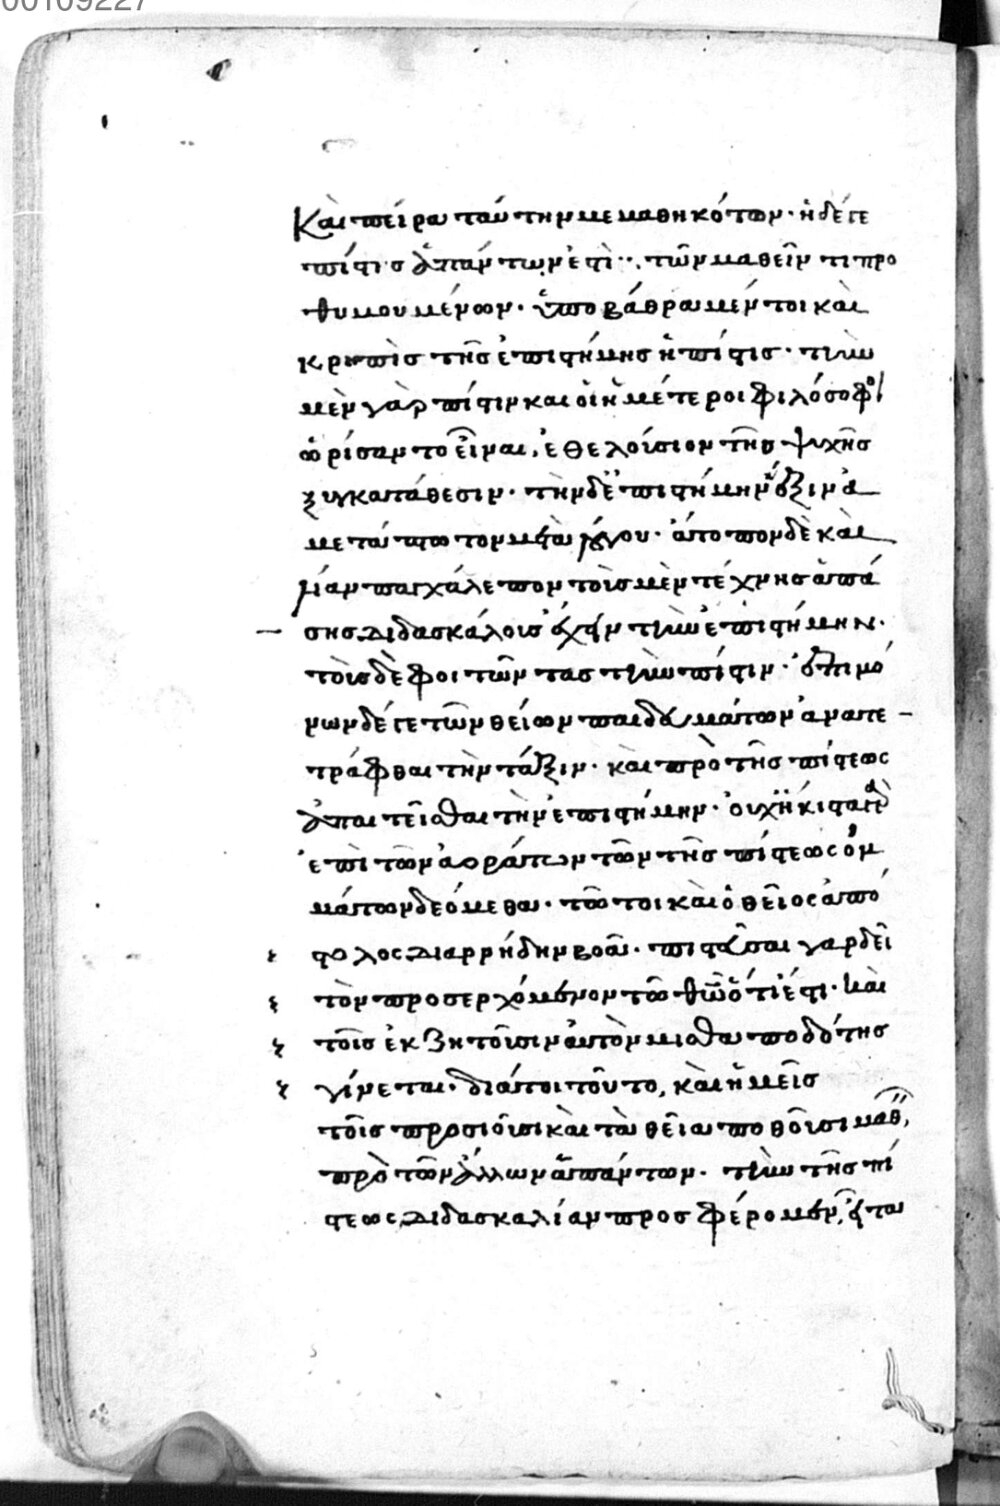 00109227
Καὶ πείρα ταύτην μεμαθηκότων· ἡ δέ γε
πίστις ἁπάντων ἐστὶ τῶν μαθεῖν τι προ
θυμουμένων· ὑποβάθρα μέν τοι καὶ
κρηπὶς τῆς ἐπιστήμης ἡ πίστις· τὴν
μὲν γὰρ πίστιν και οἱ ἡμέτεροι φιλόσοφοι
ὡρίσαντο εἶναι, ἐθελούσιον τῆς ψυχῆς
ξυγκατάθεσιν· τὴν δὲ ἐπιστήμην ἕξιν ἀ
μετάπτωτον μετὰ λόγου· ἄτοπον δὲ καὶ
λίαν παγχάλεπον τοῖς μὲν τέχνης ἁπά
σης διδασκάλοις ἔχειν τὴν ἐπιστήμην·
τοῖς δὲ φοιτῶντας τὴν πίστιν· ἐπὶ μό
νων δέ γε τῶν θείων παιδευμάτων ἀναπε
τράφθαι τὴν τάξιν· καὶ πρὸ τῆς πίστεως
ἀπαιτεῖσθαι τὴν ἐπιστήμην· οὐχ ἥκιστα δὲ
ἐπὶ τῶν ἀοράτων τῶν τῆς πίστεως ὀμ
μάτων δεόμεθα· τῶ τοι καὶ ὁ θεῖος ἀπό
στολος διαρρήδην βοᾶ· πιστεῦσαι γαρ δεῖ
τὸν προσερχόμενον τῶ θῶ ὅτι ἐστι· καὶ
τοῖς ἐκζητοῦσιν αὐτὸν μισθαποδότης
γίνεται· διάτοι τοῦτο, καὶ ἡμεῖς
τοῖς προσιοῦσι καὶ τὰ θεῖα ποθοῦσι μαθεῖν,
πρὸ τῶν ἄλλων ἁπάντων· τὴν τῆς πί
στεως διδασκαλίαν προσφέρομεν, εἶτα